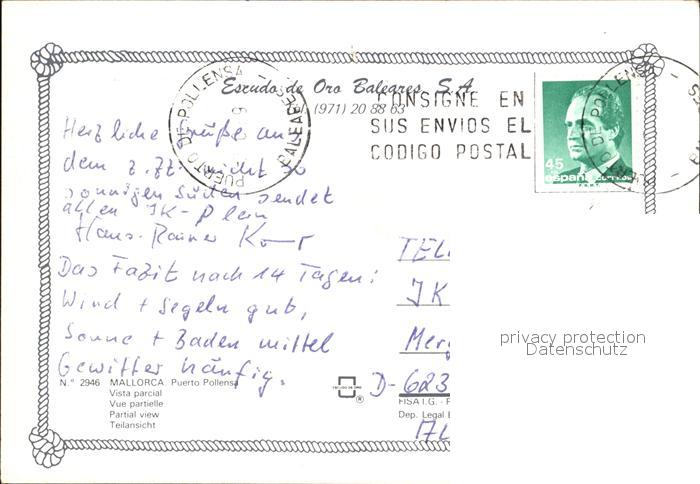 Escudo de Oro Baleares, S.A.
(971) 20 88 63
PUERTO DE POLLENSA
BALEARES
CONSIGNE EN
SUS ENVIOS EL
CODIGO POSTAL
45
españa
Herzliche Grüße aus
dem z.Zt. nicht so
sonnigen Süden sendet
allen IK-
Hans-Rainer
Das Fazit nach 14 Tagen:
Wind + Segeln gut,
Sonne + Baden mittel
Gewitter häufig.
TEL
IK
Merg
D-623
privacy protection
Datenschutz
N.º 2946 MALLORCA. Puerto Pollensa
Vista parcial
Vue partielle
Partial view
Teilansicht
ESCUDO DE ORO
®
FISA I.G. - P
Dep. Legal B